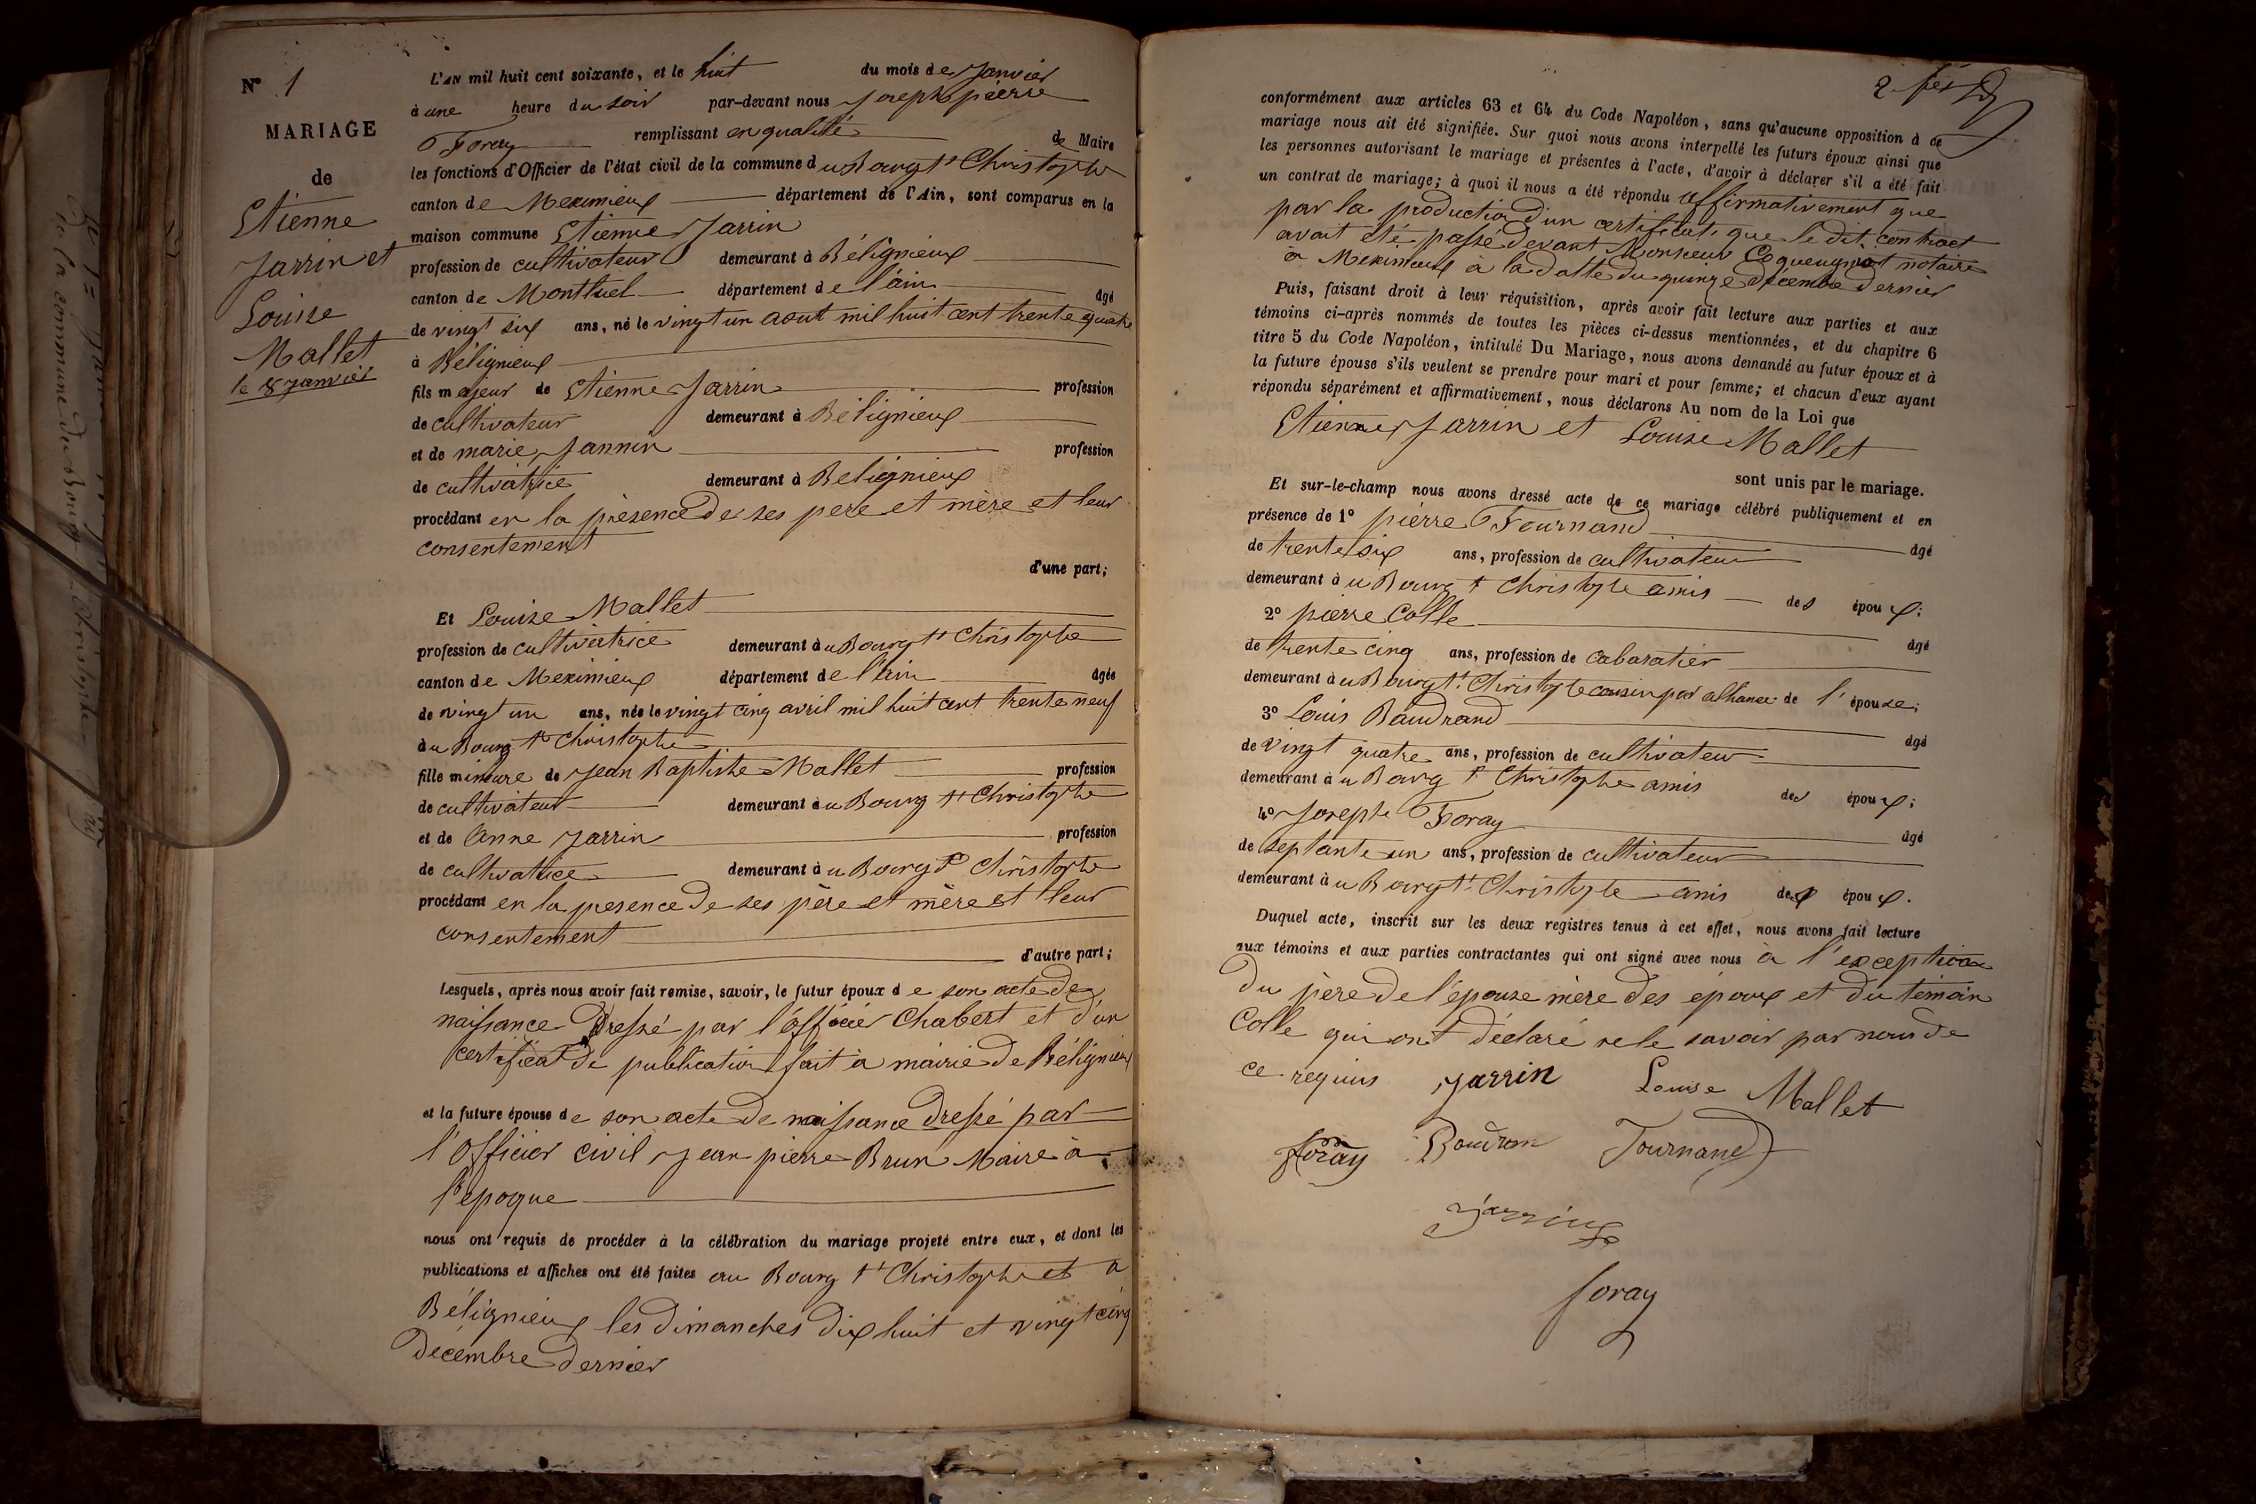 N° 1
MARIAGE
de
Etienne
Jarrin et
Louise
Mallet
le 8 janvier
L'AN mil huit cent soixante, et le huit du mois de Janvier
à une heure du soir par-devant nous Joseph pierre
Foray remplissant en qualité de Maire
les fonctions d'Officier de l'état civil de la commune du Bourg St Christophe
canton de Meximieux département de l'Ain, sont comparus en la
maison commune Etienne Jarrin
profession de cultivateur demeurant à Bélignieux
canton de Montluel département de l'ain âgé
de vingt six ans, né le vingt un aout mil huit cent trente quatre
à Bélignieux
fils majeur de Etienne Jarrin profession
de cultivateur demeurant à Bélignieux
et de marie Jannin profession
de cultivatrice demeurant à Belignieux
procédant en la présence de ses pere et mère et leur
consentement
d'une part;
Et Louise Mallet
profession de cultivatrice demeurant au Bourg St Christophe
canton de Meximieux département de l'ain âgée
de vingt un ans, née le vingt cinq avril mil huit cent trente neuf
au Bourg St Christophe
fille mineure de Jean Baptiste Mallet profession
de cultivateur demeurant au Bourg St Christophe
et de Anne Jarrin profession
de cultivatrice demeurant au Bourg St Christophe
procédant en la presence de ses père et mère et leur
consentement
d'autre part;
Lesquels, après nous avoir fait remise, savoir, le futur époux de son acte de
naissance dressé par l'officier Chabert et d'un
certificat de publication fait à mairie de Bélignieux
et la future épouse de son acte de naissance dressé par
l'Officier civil Jean pierre Brun Maire à
l'epoque
nous ont requis de procéder à la célébration du mariage projeté entre eux, et dont les
publications et affiches ont été faites au Bourg St Christophe et à
Bélignieux les dimanches dix huit et vingt cinq
decembre dernier
conformément aux articles 63 et 64 du Code Napoléon, sans qu'aucune opposition à ce
mariage nous ait été signifiée. Sur quoi nous avons interpellé les futurs époux ainsi que
les personnes autorisant le mariage et présentes à l'acte, d'avoir à déclarer s'il a été fait
un contrat de mariage; à quoi il nous a été répondu affirmativement que
par la production d'un certificat que le dit contract
avait été passé devant Monsieur notaire
à Meximieux à la datte du quinze décembre dernier
Puis, faisant droit à leur réquisition, après avoir fait lecture aux parties et aux
témoins ci-après nommés de toutes les pièces ci-dessus mentionnées, et du chapitre 6
titre 5 du Code Napoléon, intitulé Du Mariage, nous avons demandé au futur époux et à
la future épouse s'ils veulent se prendre pour mari et pour femme; et chacun d'eux ayant
répondu séparément et affirmativement, nous déclarons Au nom de la Loi que
Etienne Jarrin et Louise Mallet
sont unis par le mariage.
Et sur-le-champ nous avons dressé acte de ce mariage célébré publiquement et en
présence de 1° pierre Tournand âgé
de trente six ans, profession de cultivateur
demeurant à u Bourg St Christophe amis des époux;
2° pierre Colle âgé
de trente cinq ans, profession de cabaratier
demeurant à u Bourg St Christophe cousin par alliance de l'épouse;
3° Louis Baudrand âgé
de vingt quatre ans, profession de cultivateur
demeurant à u Bourg St Christophe amis des époux;
4° Joseph Foray âgé
de septante un ans, profession de cultivateur
demeurant à u Bourg St Christophe amis des époux.
Duquel acte, inscrit sur les deux registres tenus à cet effet, nous avons fait lecture
aux témoins et aux parties contractantes qui ont signé avec nous à l'exception
du père de l'épouse mère des époux et du témoin
Colle qui ont déclaré ne le savoir par nous de
ce requis Jarrin Louise Mallet
foray Boudran Tournand
Jarrin
foray